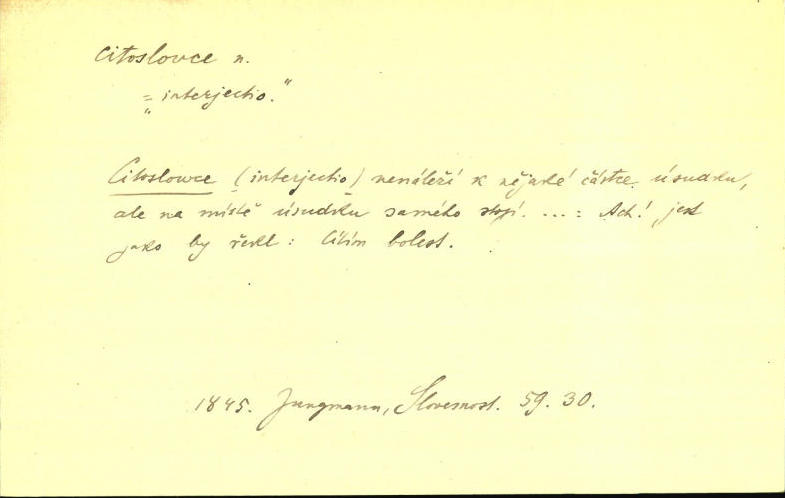 Citoslovce n.
= „interjectio."
Citoslowce (interjectio) nenáleží k nějaké částce úsudku,
ale na místě úsudku samého stojí. ... : Ach! jest
jako by řekl: Cítím bolest.
1845. Jungmann, Slovesnost. 59. 30.